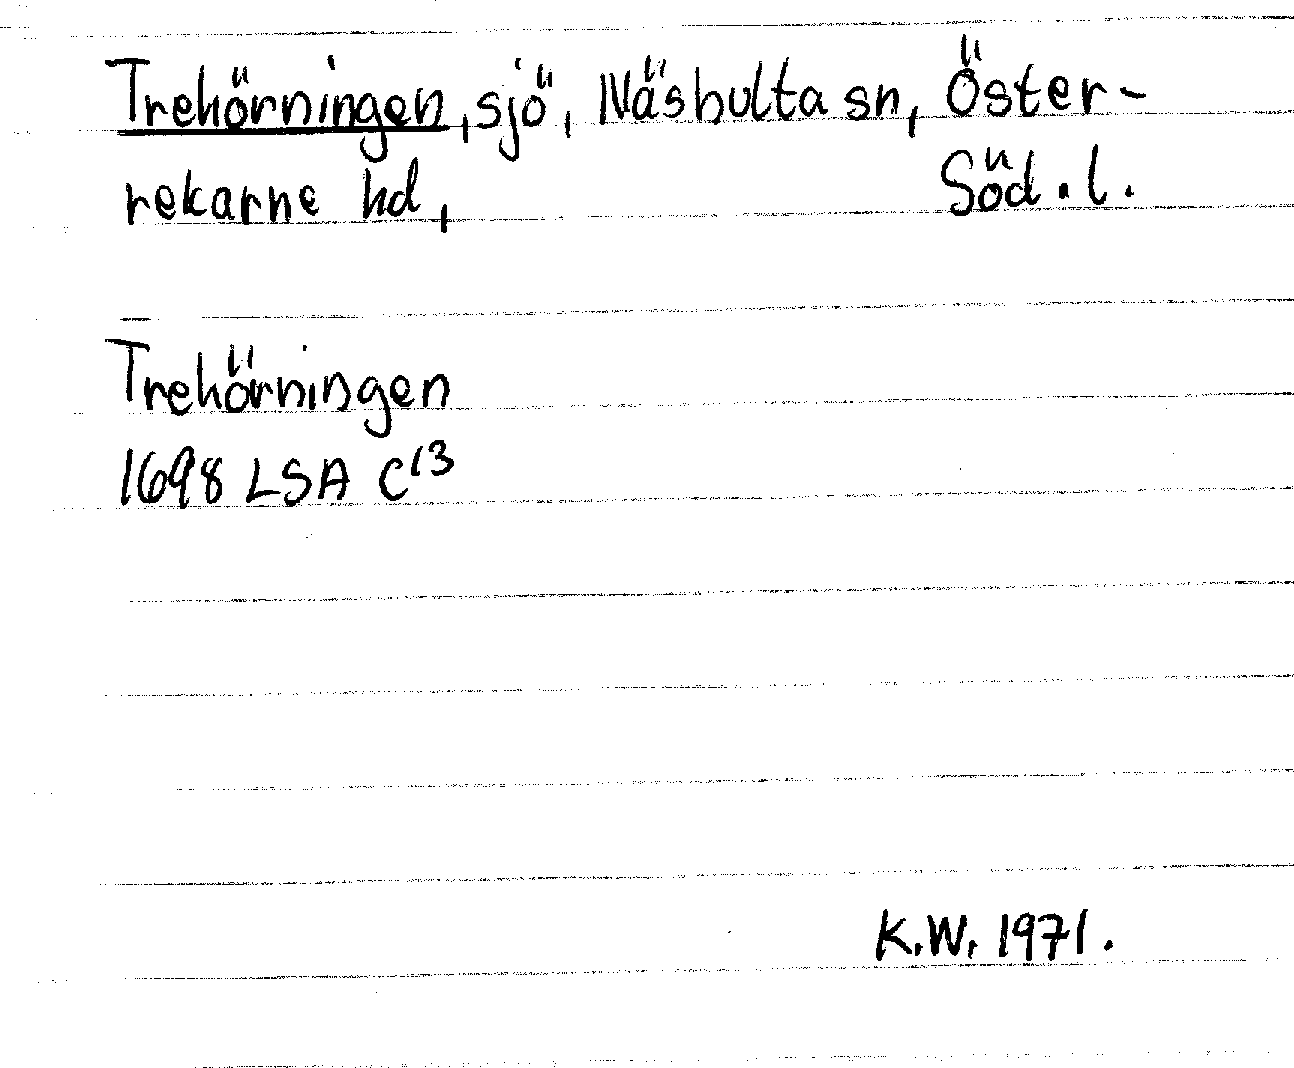 Trehörningen, sjö, Näshulta sn, Öster-
rekarne hd, Söd.l.
Trehörningen
1698 LSA C¹³
K.W. 1971.